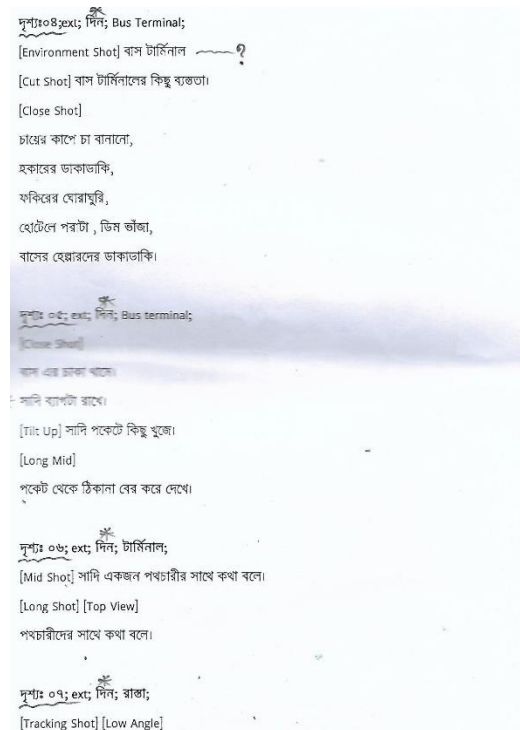 দৃশ্যঃ০৪;ext; দিন; Bus Terminal;
[Environment Shot] বাস টার্মিনাল ?
[Cut Shot] বাস টার্মিনালের কিছু ব্যস্ততা।
[Close Shot]
চায়ের কাপে চা বানানো,
হকারের ডাকাডাকি,
ফকিরের ঘোরাঘুরি,
হোটেলে পরটা , ডিম ভাঁজা,
বাসের হেল্পারদের ডাকাডাকি।
দৃশ্যঃ ০৫; ext; দিন; Bus terminal;
[Close Shot]
বাস এর চাকা থামে।
সাদি ব্যাগটা রাখে।
[Tilt Up] সাদি পকেটে কিছু খুজে।
[Long Mid]
পকেট থেকে ঠিকানা বের করে দেখে।
দৃশ্যঃ ০৬; ext; দিন; টার্মিনাল;
[Mid Shot] সাদি একজন পথচারীর সাথে কথা বলে।
[Long Shot] [Top View]
পথচারীদের সাথে কথা বলে।
দৃশ্যঃ ০৭; ext; দিন; রাস্তা;
[Tracking Shot] [Low Angle]